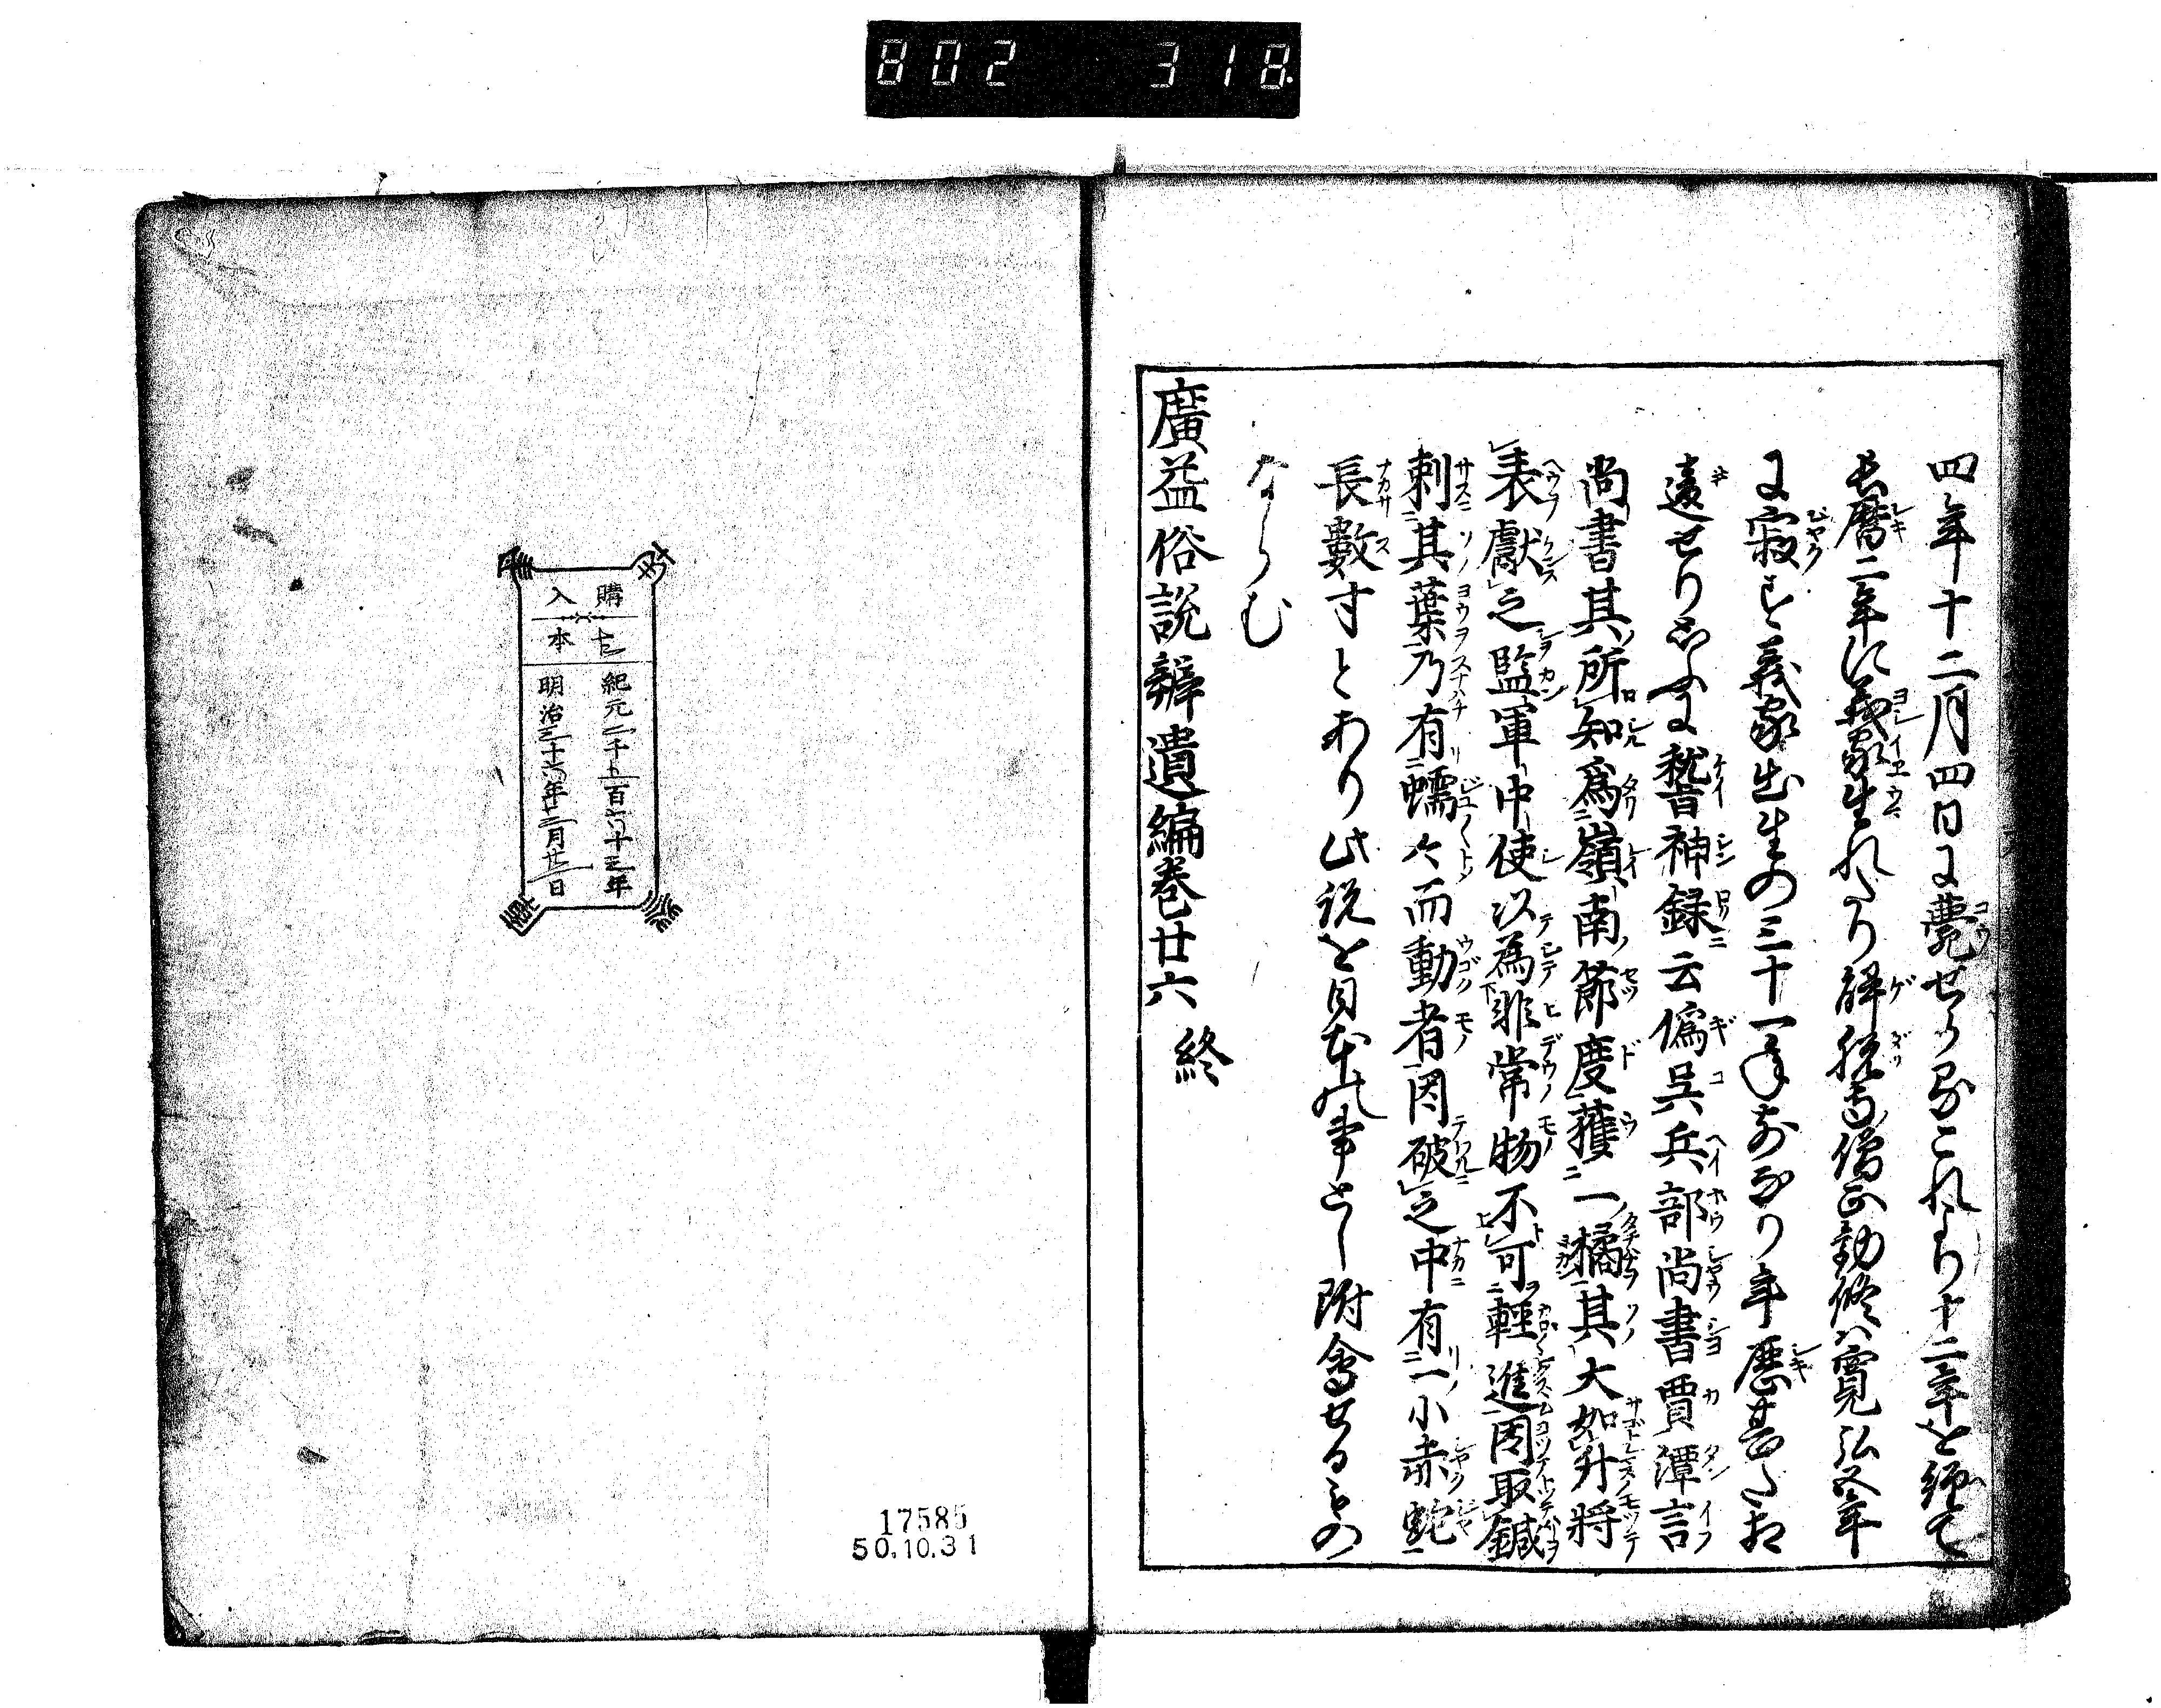 802 318.
四年十二月四日に薨せらるこれより十二年を經て
長曆二年に義家生れたり解脱寺僧正勸修ハ寬弘五年
に寂す義家出生の三十一年前なり年曆甚た相
違せり しかるに稽神録云僞呉兵部尚書賈潭言
尚書其所知爲嶺南節度獲一橘其大如升將
表獻之監軍中使以爲非常物不可輕進因取鍼
刺其葉乃有蠕々而動者因破之中有一小赤蛇
長數寸とあり此説を日本の事とし附會せるもの
ならむ
廣益俗説辨遺編巻廿六 終
購入
本
紀元二千五百六十三年
明治三十六年十二月廿三日
17585
50.10.31